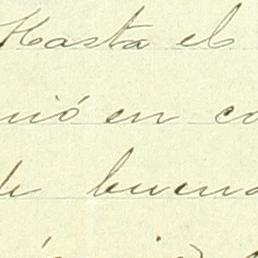 Hasta el
nió en co
de buena